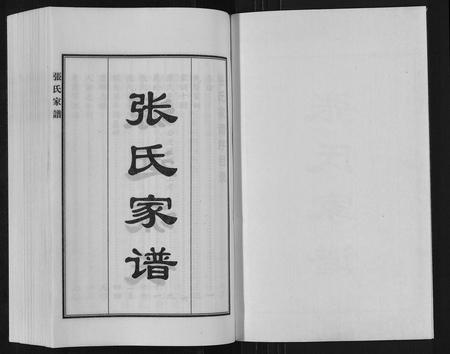 张氏家谱
張氏家譜